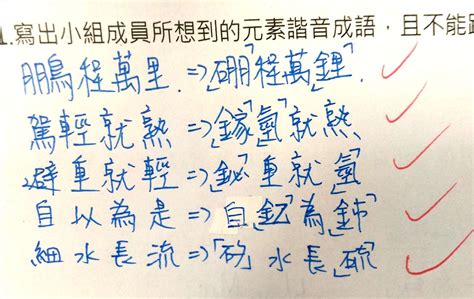 1.寫出小組成員所想到的元素諧音成語,且不能
鵬鳥程萬里.=>「硼」程萬「鋰」
駕輕就熟=>「鎵」「氫」就熟
避重就輕=>「鉍」重就「氫」
自以為是=>自「釔」為「鈰」
細水長流=>「矽」水長「硫」